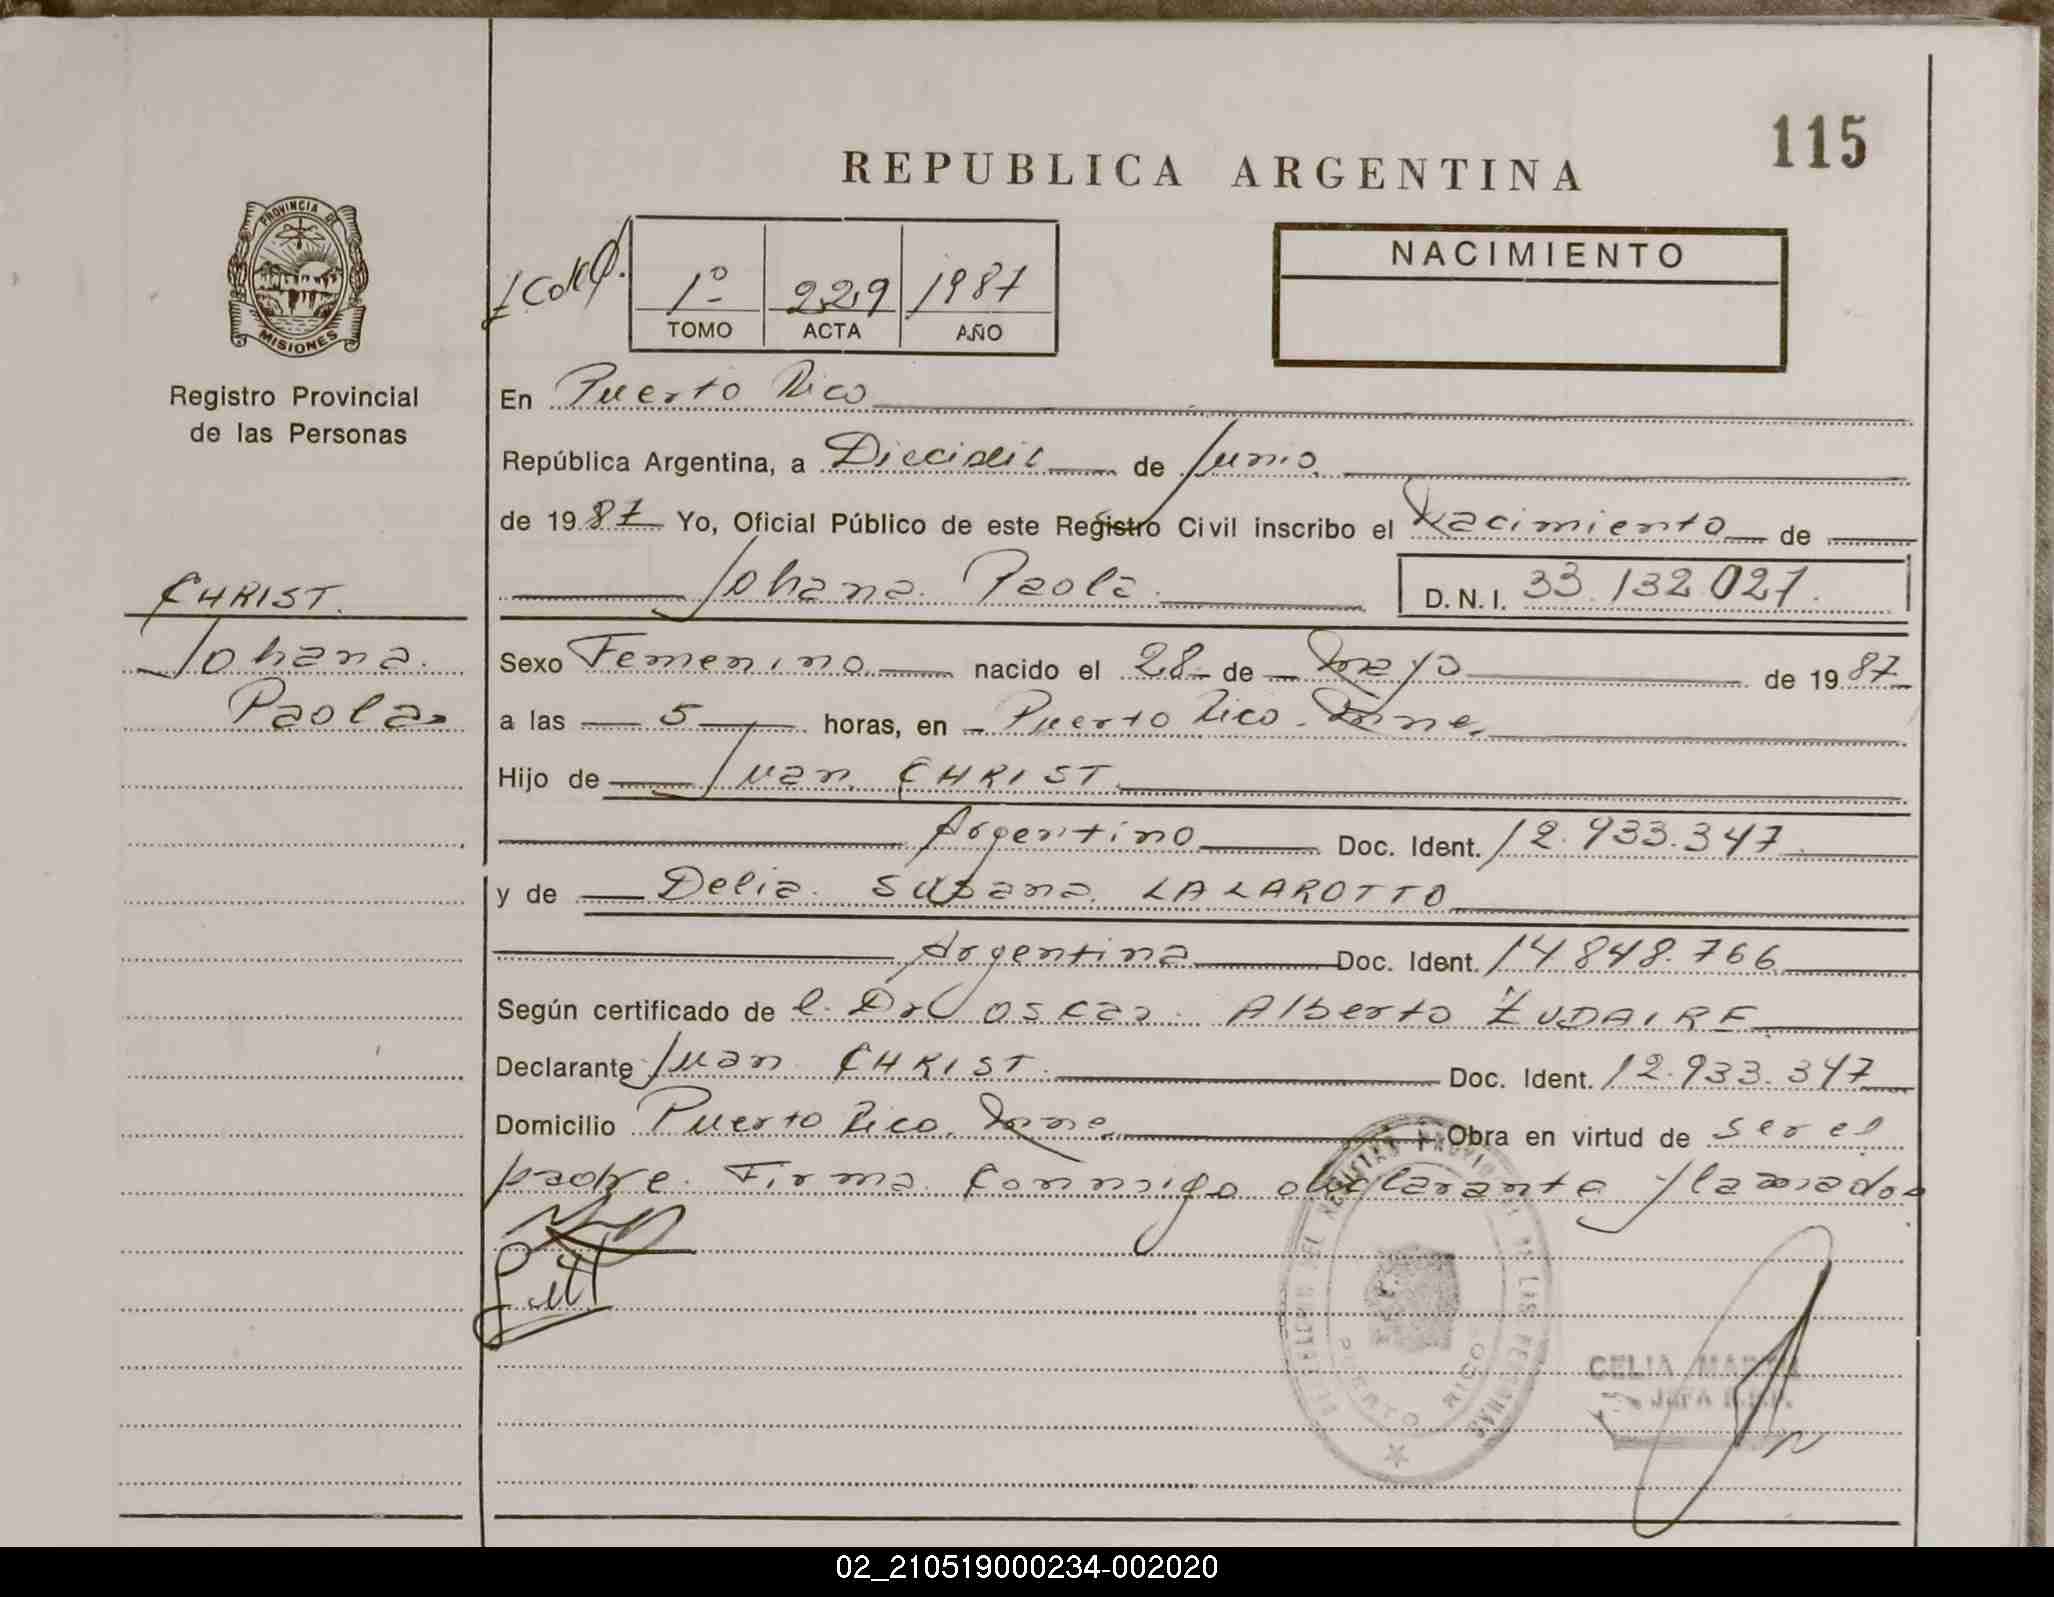 115
REPUBLICA ARGENTINA
PROVINCIA DE
MISIONES
Registro Provincial
de las Personas
1º 229 1987
TOMO ACTA AÑO
NACIMIENTO
En Puerto Rico
República Argentina, a Dieciseis de Junio
de 1987 Yo, Oficial Público de este Registro Civil inscribo el Nacimiento de
Johana Paola D.N.I. 33.132.027.
CHRIST.
Johana
Paola
Sexo Femenino nacido el 28 de Mayo de 1987
a las 5 horas, en Puerto Rico. Mnes.
Hijo de Juan CHRIST
Argentino Doc. Ident. 12.933.347
y de Delia Susana LALAROTTO
Argentina Doc. Ident. 14.848.766
Según certificado de l. Dr Oscar Alberto ZUDAIRE
Declarante Juan CHRIST Doc. Ident. 12.933.347
Domicilio Puerto Rico. Mnes Obra en virtud de ser el
padre. Firma conmigo declarante
PUERTO RICO
CELIA
02_210519000234-002020